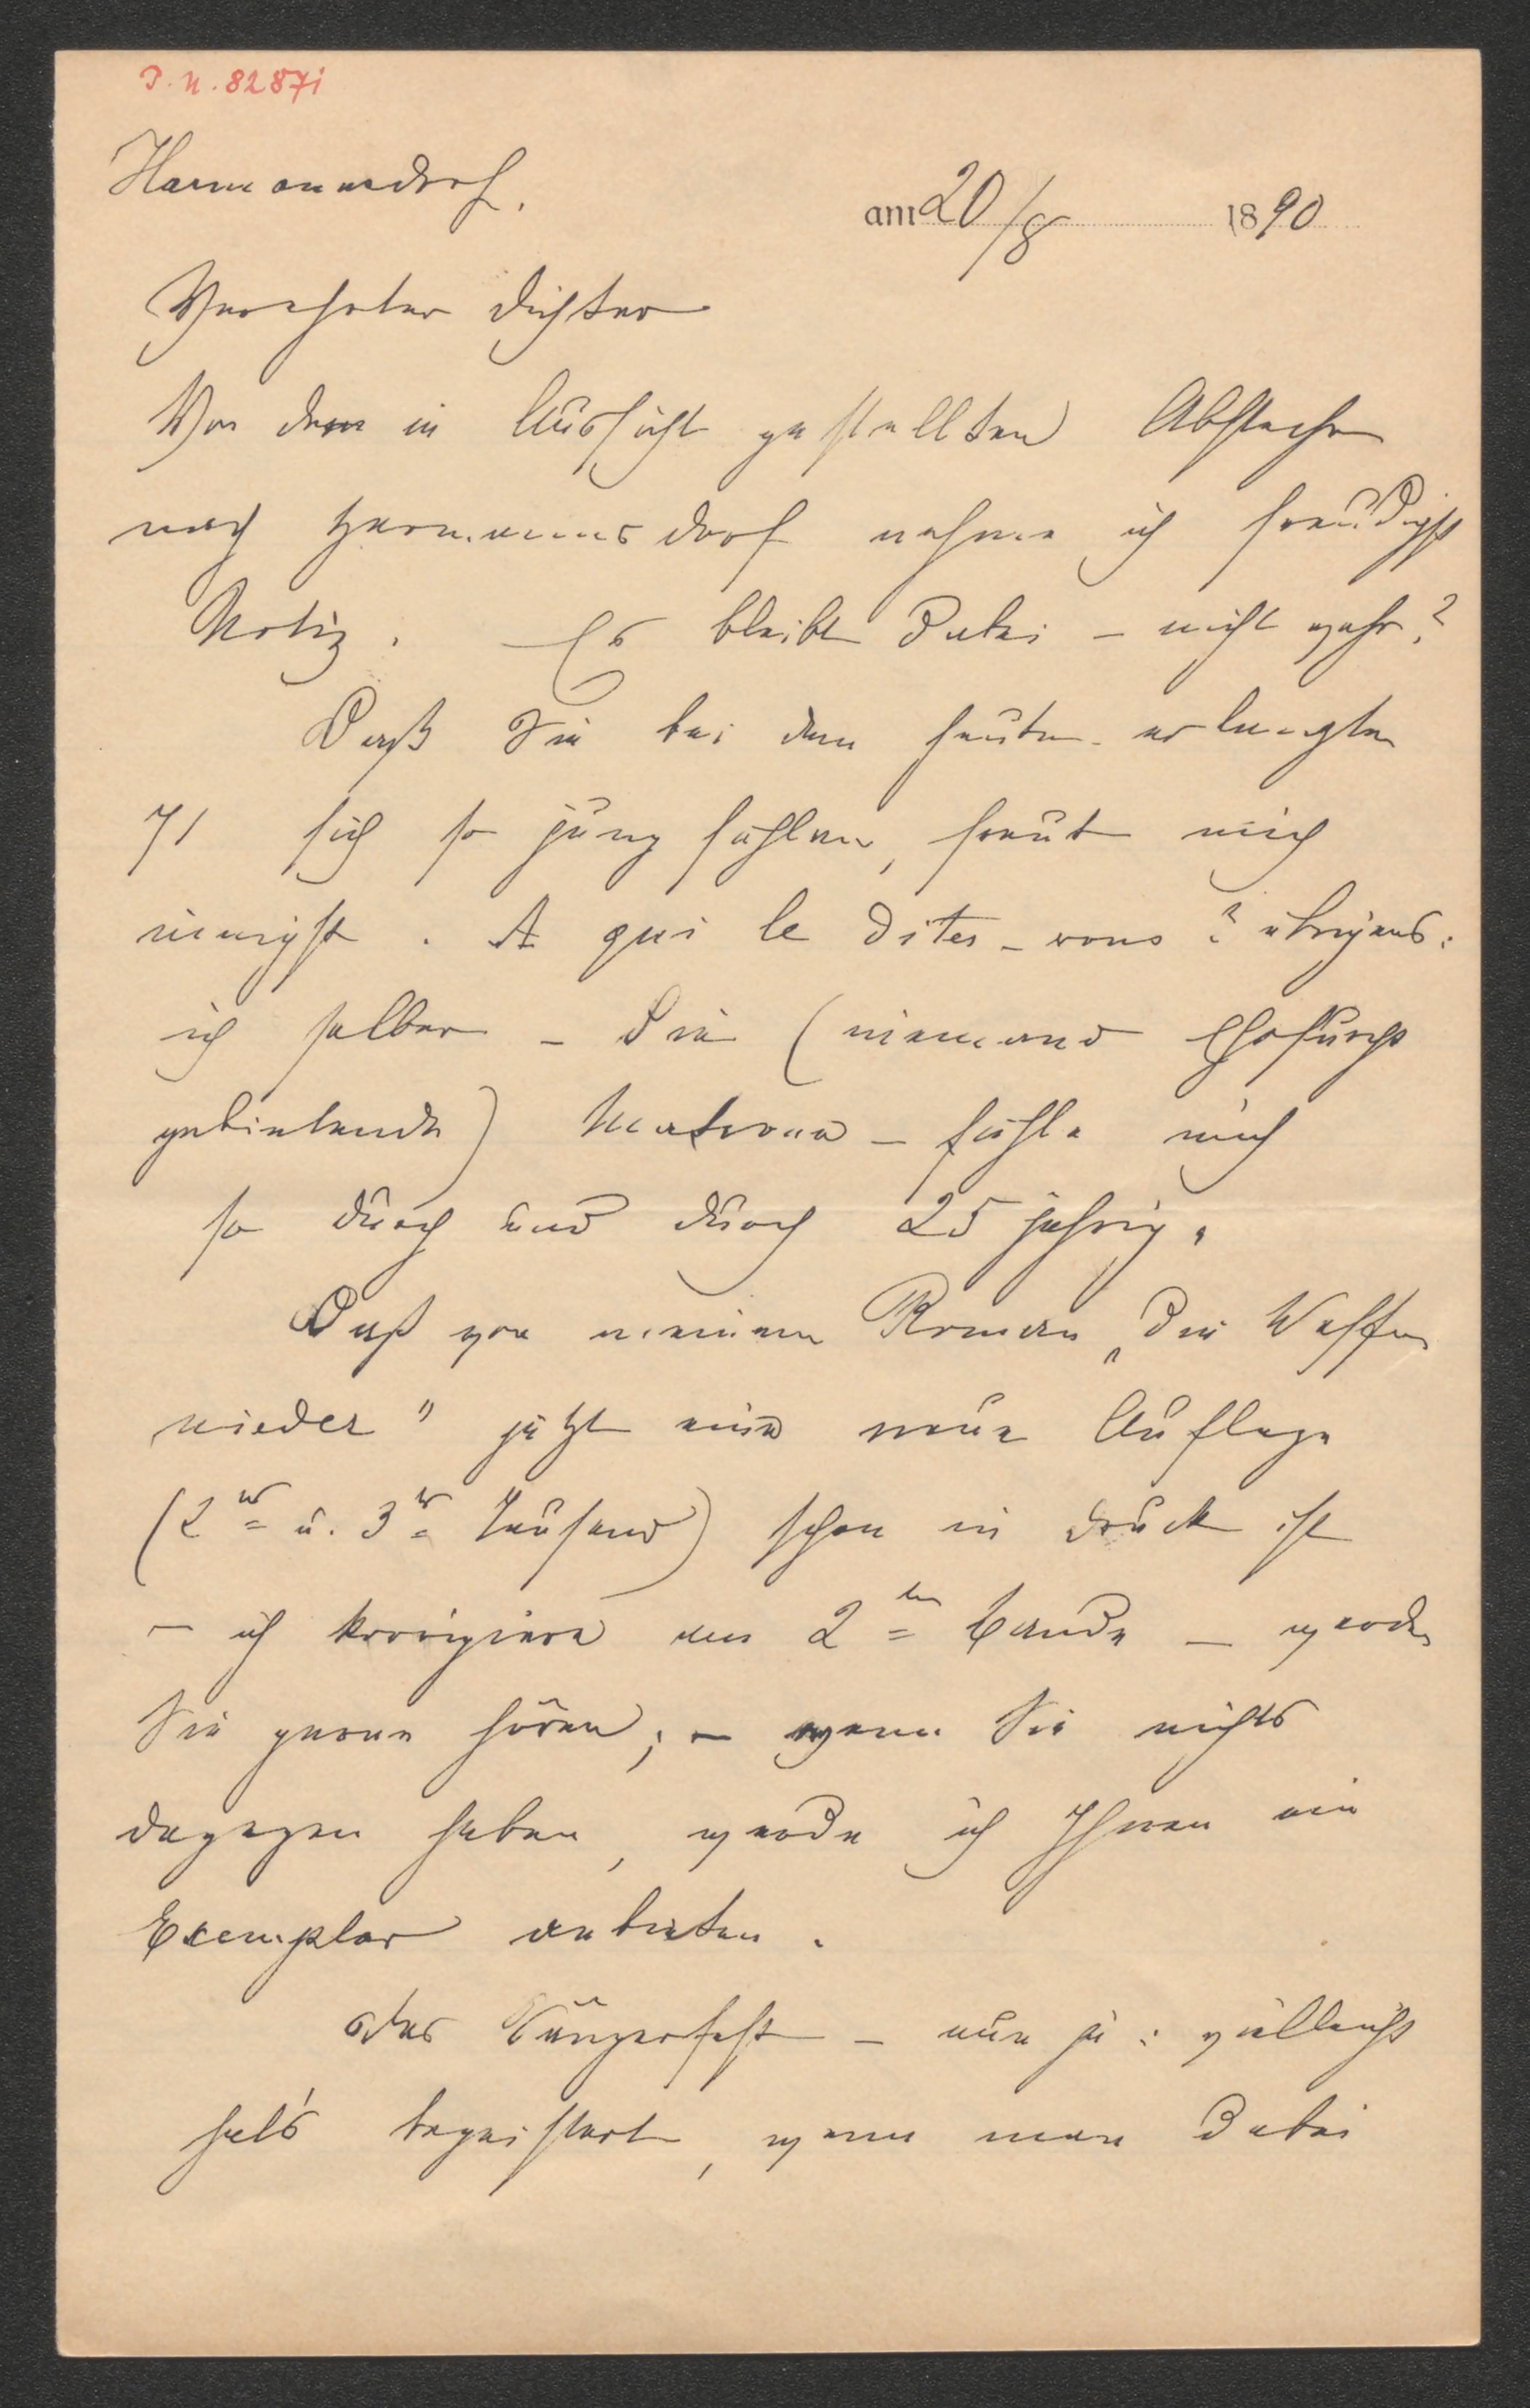 J. N. 82871
Harmannsdorf.
am 20/8 1890
Verehrter Dichter
Von dem in Aussicht gestellten Abstecher
nach Harmannsdorf nehme ich freudigst
Notiz. Es bleibt dabei – nicht wahr?
Daß Sie bei dem heute erlangten
71 sich so jung fühlen, freut mich
innigst. A qui le dites-vous? übrigens:
ich selber – die (niemand Ehrfurcht
gebietende) Matrone – fühle mich
so durch und durch 25 jährig.
Daß von meinem Roman „Die Waffen
nieder" jetzt eine neue Auflage
(2tes u. 3tes Tausend) schon in Druck ist
– ich korrigiere am 2ten Bande – werden
Sie gerne hören; – wenn Sie nichts
dagegen haben, werde ich Ihnen ein
Exemplar anbieten.
Das Sängerfest – nun ja: vielleicht
hat's begeistert, wenn man dabei